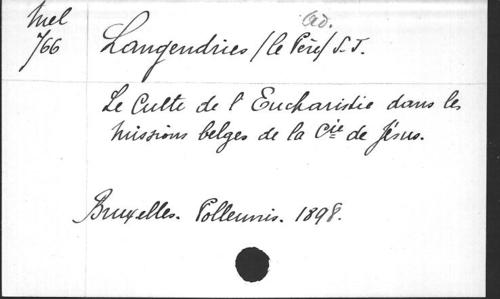 Mel
766
ad.
Langendries /le Père/ S. J.
Le Culte de l'Eucharistie dans les
missions belges de la Cie de Jésus.
Bruxelles. Polleunis. 1898.